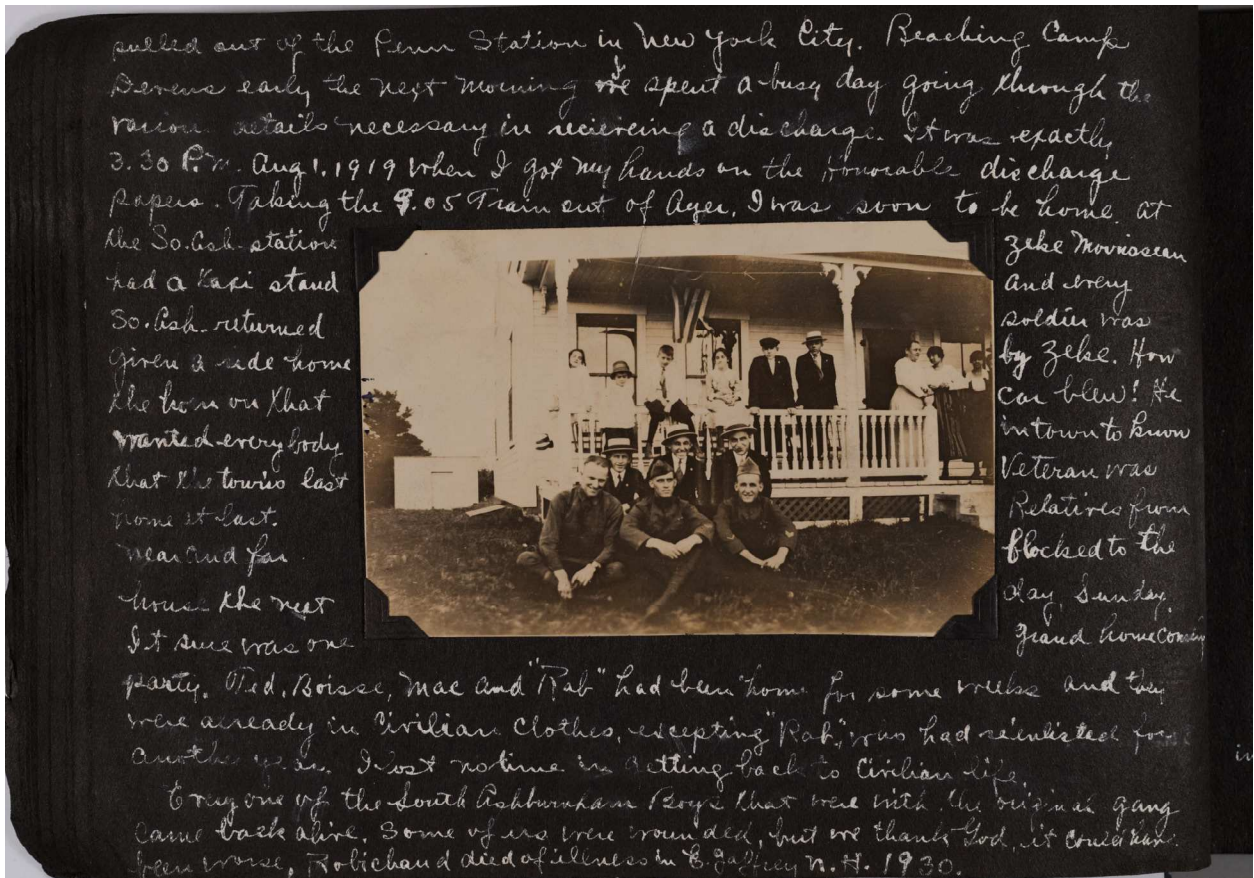 pulled out of the Penn Station in New York City. Reaching Camp
Devens early the next morning we spent a busy day going through the
various details necessary in recievcing a discharge. It was exactly
3.30 P.M. Aug 1, 1919 when I got my hands on the Honorable discharge
papers. Taking the 9.05 Train out of Ayer, I was soon to be home. At
the So. Ash. station Zeke
had a Taxi stand and every
So. Ash. returned soldier was
given a ride home by Zeke. How
the horn on that car blew! He
wanted everybody in town to know
that the towns last Veteran was
home at last. Relatives from
near and far flocked to the
house the next day, Sunday.
It sure was one grand homecoming
party. Ted, Boisse, Mac and "Rab" had been home for some weeks and they
were already in Civilian Clothes, excepting "Rab", who had reinlisted for
another year. I lost no time in getting back to Civilian life.
Every one of the South Ashburnham Boys that were with the original gang
came back alive. Some of us were wounded, but we thank God, it could have
been worse. Robichaud died of illness in E. Jaffrey N.H. 1930.